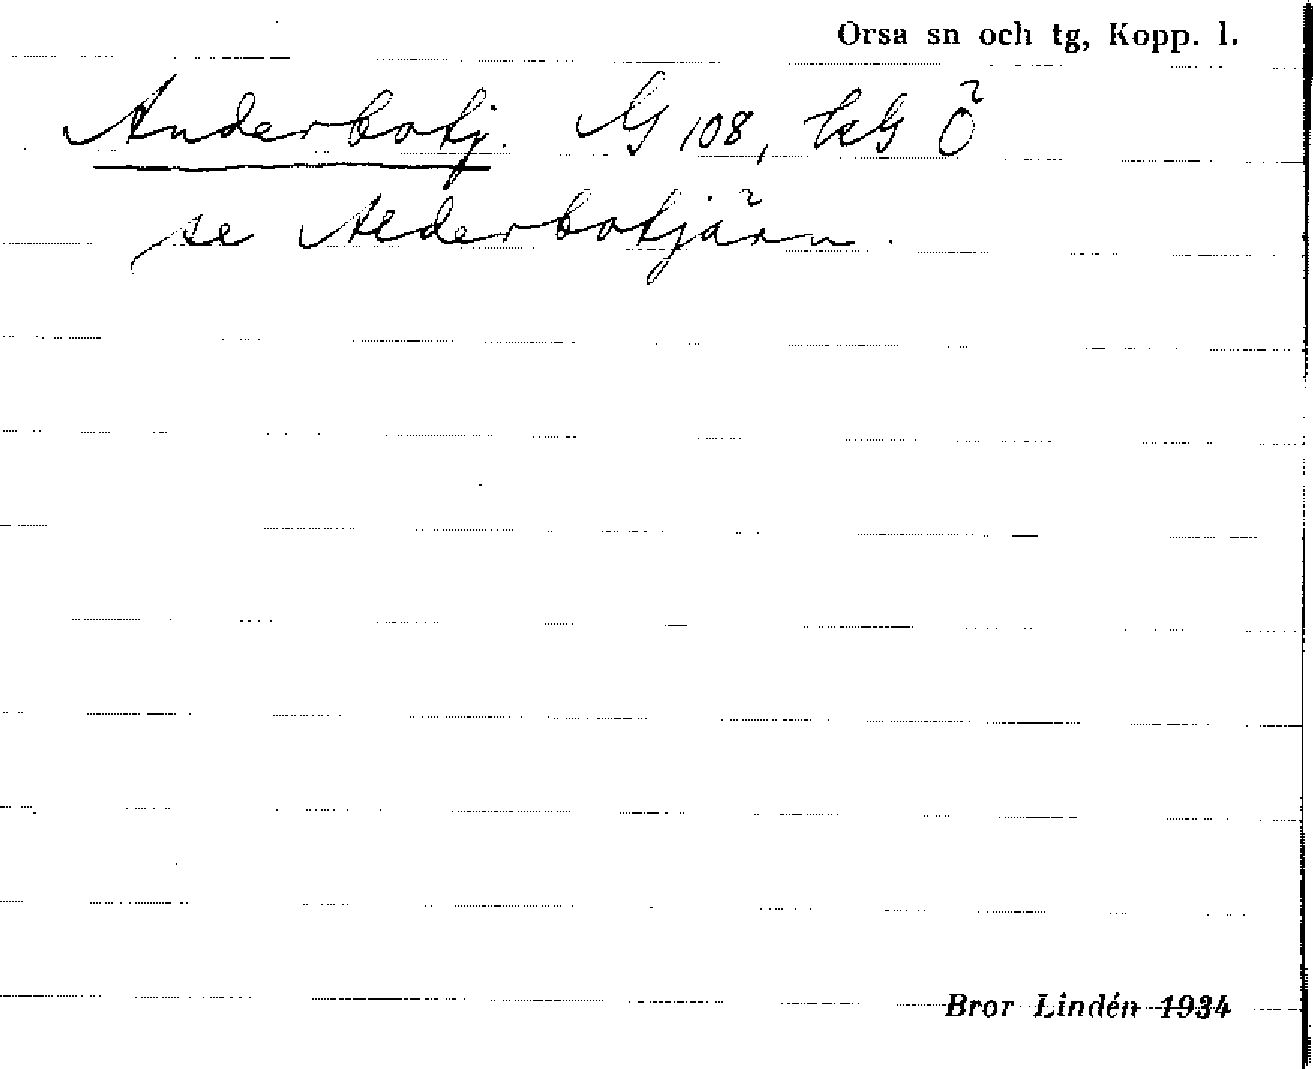 Orsa sn och tg, Kopp. l.
Anderbotj. G 108, Ö
se Nederbotjärn.
Bror Lindén 1934